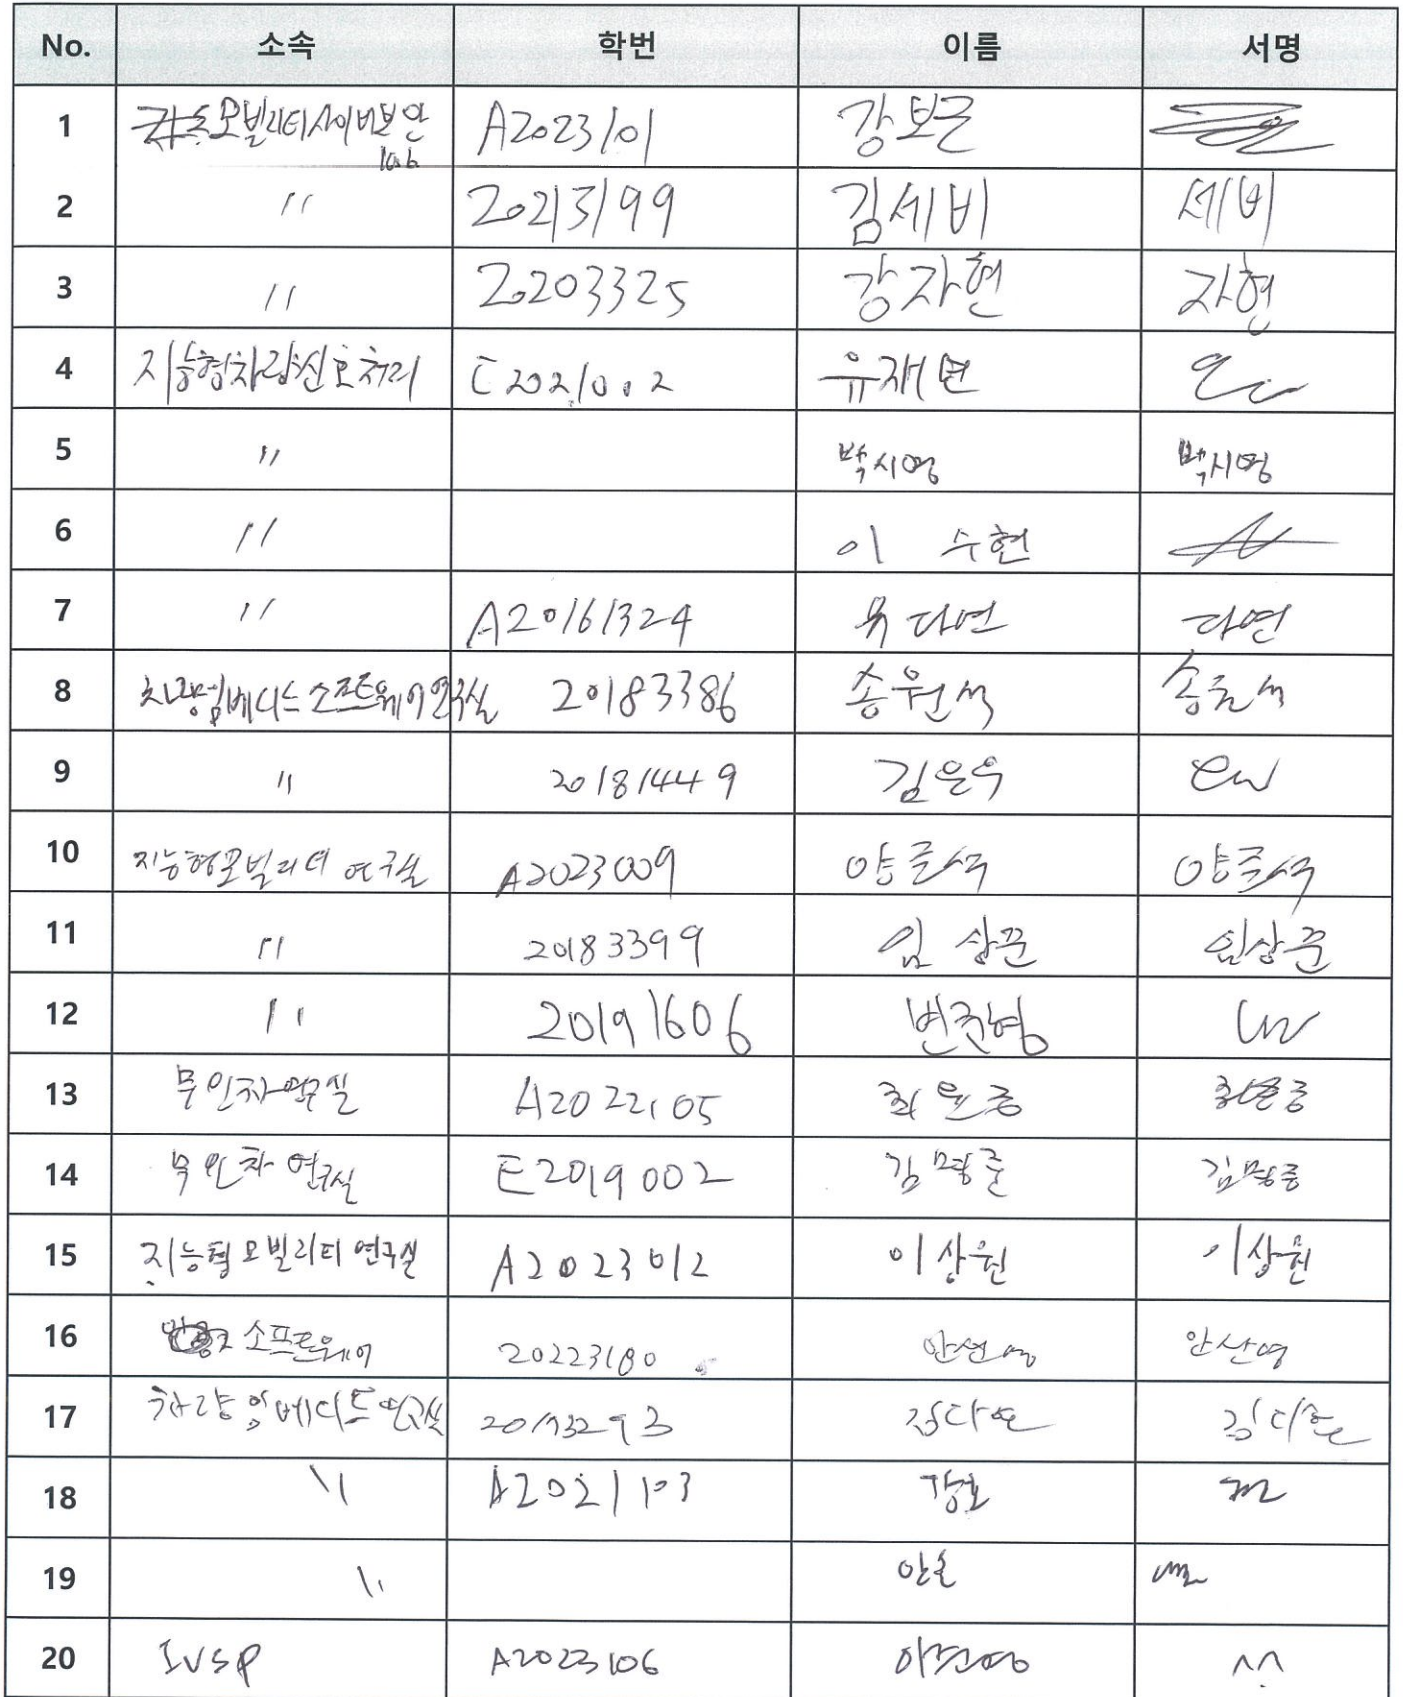 No. 소속 학번 이름 서명
1 모빌리티사이버보안 A2023101 강보근
lab
2 〃 20213199 김세비 세비
3 〃 20203325 강자현 자현
4 지능형차량신호처리 E2021002 유재면
5 〃 박시영 박시영
6 〃 이 수현
7 〃 A20161324 다연 다연
8 차량임베디드 소프트웨어연구실 20183386 송원석 송원석
9 〃 20181449 김은우
10 지능형모빌리티 연구실 A2023009 양준석 양준석
11 〃 20183399 임 상준 임상준
12 〃 20191606 변준형
13 무인차연구실 A2022105 최은종
14 무인차 연구실 E2019002 김명준 김명준
15 지능형 모빌리티 연구실 A2023012 이상원 이상원
16 소프트웨어 20223180
17 차량임베디드연구실 김다연
18 〃 A2021103
19 〃
20 IVSP A2023106